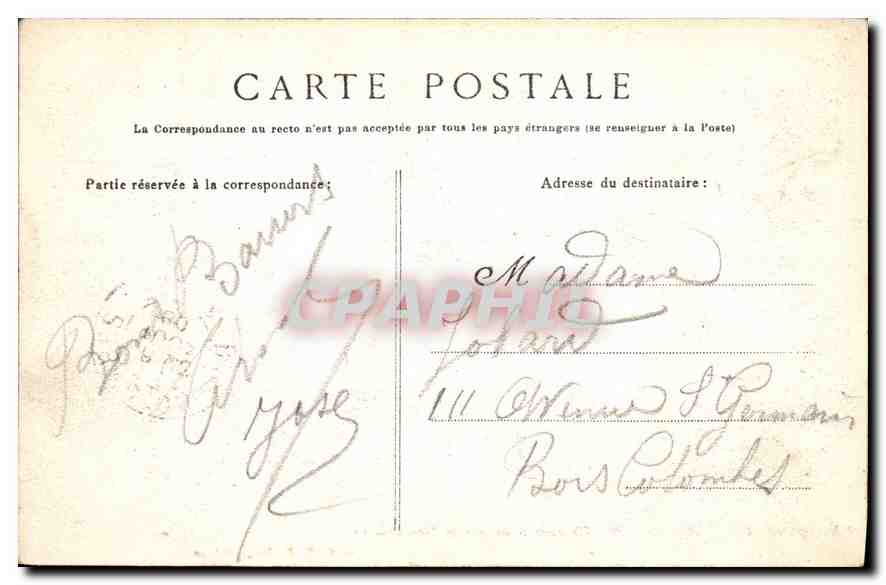 CARTE POSTALE
La Correspondance au recto n'est pas acceptée par tous les pays étrangers (se renseigner à la Poste)
Partie réservée à la correspondance:
Adresse du destinataire:
Bons Baisers
José
CPAPHIL
Madame
Jobard
111 Avenue St Germain
Bois Colombes